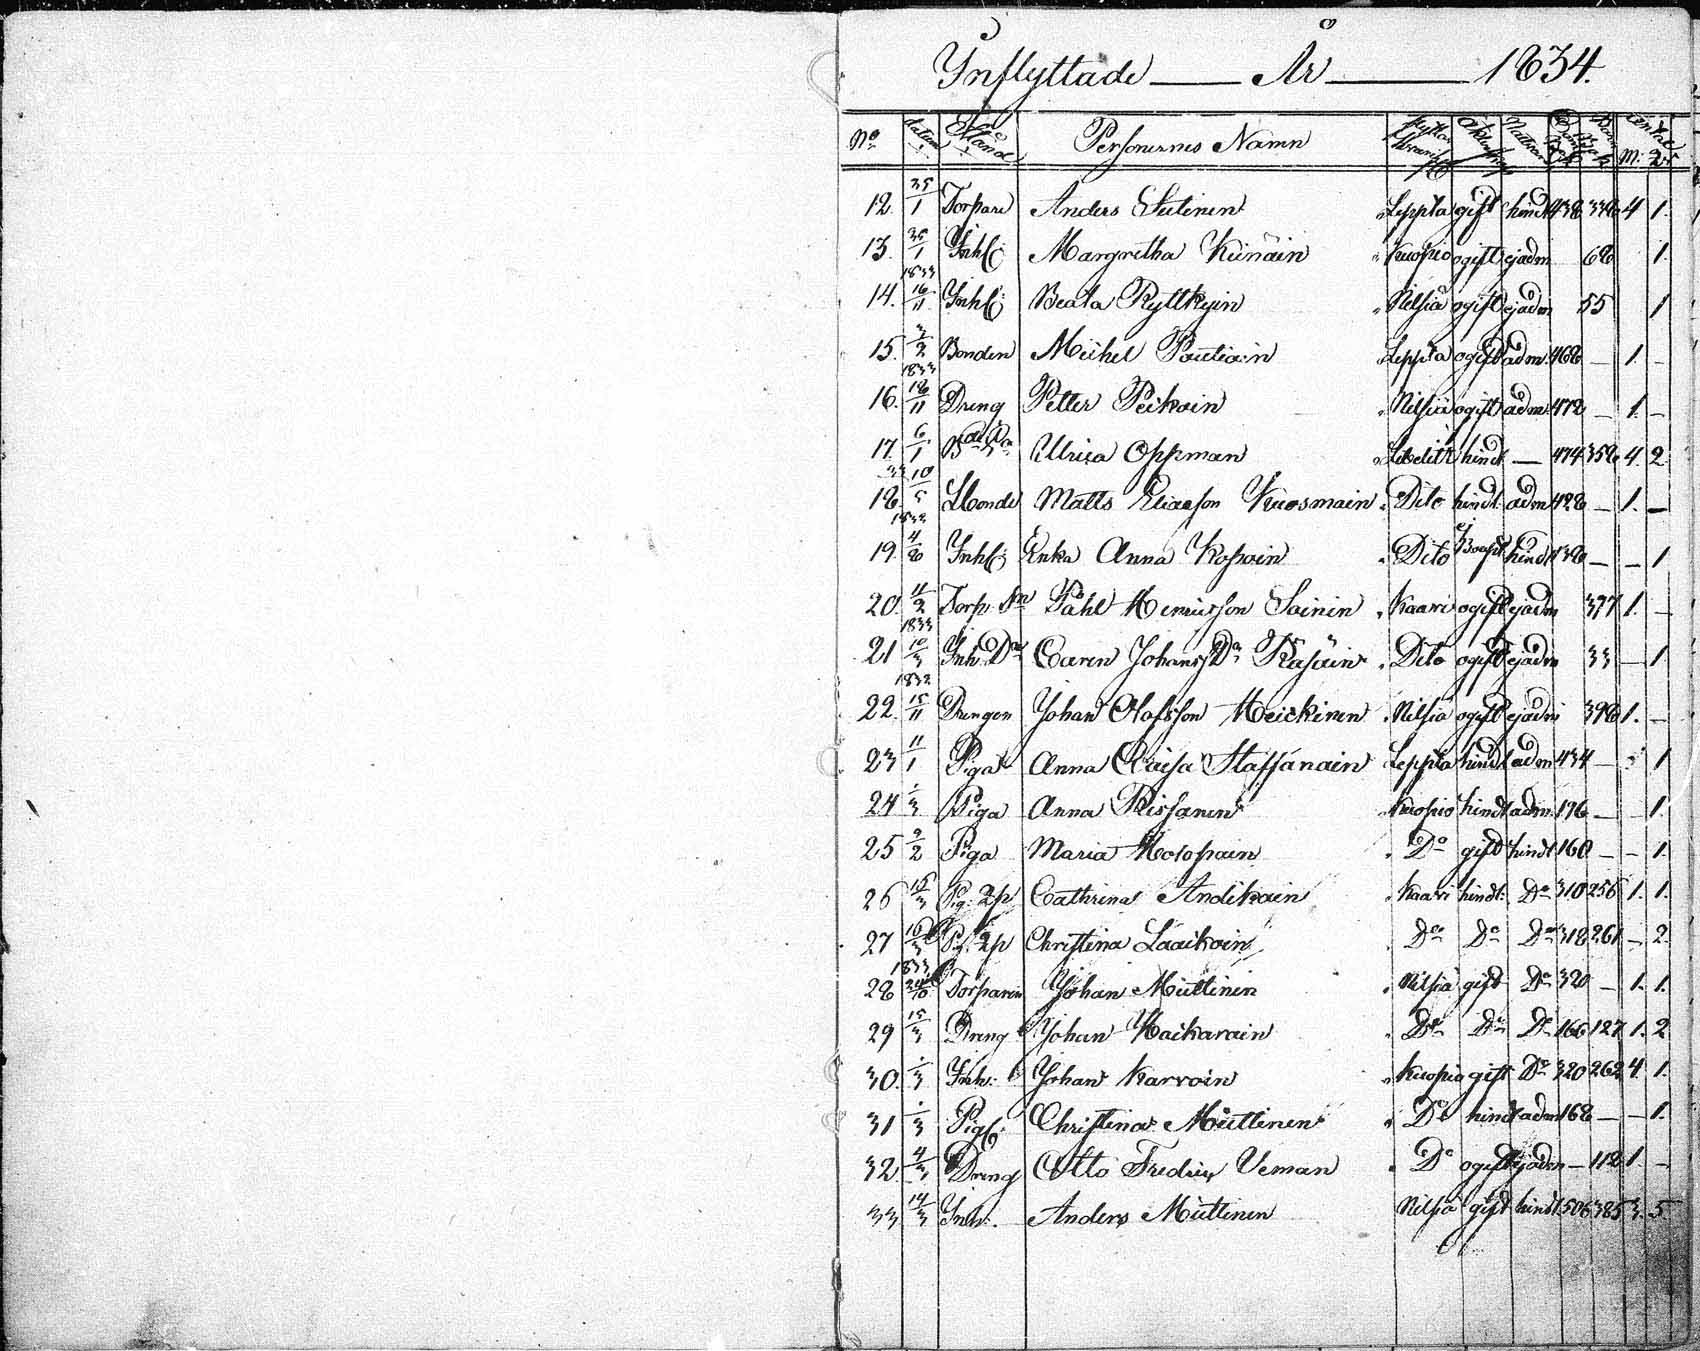 Inflyttade — År — 1834.
No datum Stånd Personernes Namn M: Q:
12. 25/1 Torpare Anders Sutinen Leppla gift hindl 438 348 4 1.
13. 25/1 Inh. Margretha Kiinäin Kuopio ogift ejadm 68 1.
1833
14. 16/11 Inh. Beata Ryttkyin Nilsiä ogift ejadm 55 1
15. 2/2 Bonden Michel Pautiain Leppla ogift adm. 468 — 1. —
1833
16. 18/11 Dreng Petter Peikoin Nilsiä ogift adm. 478 — 1. —
17. 6/1 Ulrica Oppman Libelitz hindl — 474 358 4. 2
33 10
18. 5 Matts Eliasson Kuosmain Dito hindl. adm 428 — 1. —
1832
19. 4/8 Inh. Enka Anna Kopoin Dito ej hindl 438 — — 1
20. 11/2 Torp. Sn Påhl Henricsson Soinin Kaavi ogift ejadm 377 1. —
1833
21 10/3 Inh. Dr Caren Johans Dr Räsäin Dito ogift ejadm 33 — 1
1832
22. 15/11 Drengen Johan Olofsson Heickinen Nilsiä ogift ejadm 398 1. —
23 11/1 Piga Anna Caisa Staffanain Leppla hindl adm 434 — 1
24 1/3 Piga Anna Rissanen Kuopio hindl adm. 176 — — 1.
25 2/2 Piga Maria Holopain Do gift hindl 160 — — 1.
26 15/3 Pig. 2p Cathrina Andikain Kaavi hindl. Do 310 256 1. 1.
27 16/3 Pig. 2p Christina Laaikoin Do Do Do 318 261 — 2.
1833
28 24/10 Torparen Johan Miettinen Nilsiä gift Do 320 — 1. 1.
29 15/3 Dreng Johan Kaikarain Do Do Do 166 127 1. 2
30. 1/3 Inh. Johan Karvoin Kuopio gift Do 320 262 4. 1.
31 1/3 Pig. Christina Miettinen Do hindl adm 168 — — 1.
32. 4/3 Dreng Otto Fredric Veman Do ogift ejadm — 118 1. —
33 14/3 Inh. Anders Miettinen Nilsiä gift hindl 506 385 3. 5